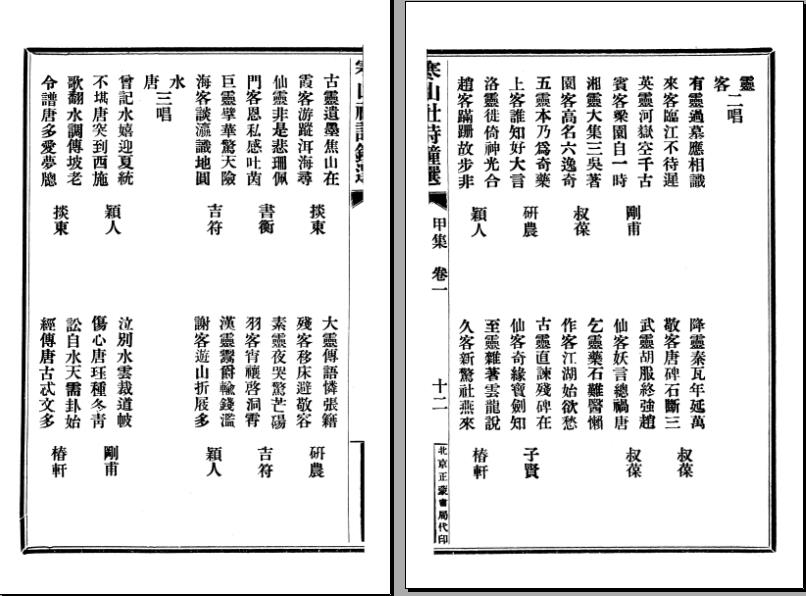 靈
二唱
客
有靈過墓應相識　降靈秦瓦年延萬
來客臨江不待遲　敬客唐碑石斷三　叔葆
英靈河嶽空千古　武靈胡服終強趙
賓客梁園自一時　剛甫　仙客妖言總禍唐　叔葆
湘靈大集三吳著　乞靈藥石難醫懶
園客高名六逸奇　叔葆　作客江湖始欲愁
五靈本乃爲奇藥　古靈直諫殘碑在
上客誰知好大言　研農　仙客奇緣寶劍知　子賢
洛靈徙倚神光合　至靈雜著雲龍說
趙客蹣跚故步非　穎人　久客新驚社燕來　椿軒
寒山社詩鐘選　甲集　卷一　十二　北京正蒙書局代印
寒山社詩鐘選
古靈遺墨焦山在　大靈傳語憐張籍
霞客游蹤洱海尋　掞東　殘客移床避敬容　研農
仙靈非是悲珊佩　素靈夜哭驚芒碭
門客恩私感吐茵　書衡　羽客宵禳啓洞霄　吉符
巨靈擘華驚天險　漢靈鬻爵輸錢濫
海客談瀛識地圓　吉符　謝客遊山折屐多　穎人
水
三唱
唐
曾記水嬉迎夏統　泣別水雲裁道帔
不堪唐突到西施　穎人　傷心唐珏種冬靑　剛甫
歌翻水調傳坡老　訟自水天需卦始
令譜唐多愛夢牕　掞東　經傳唐古忒文多　椿軒